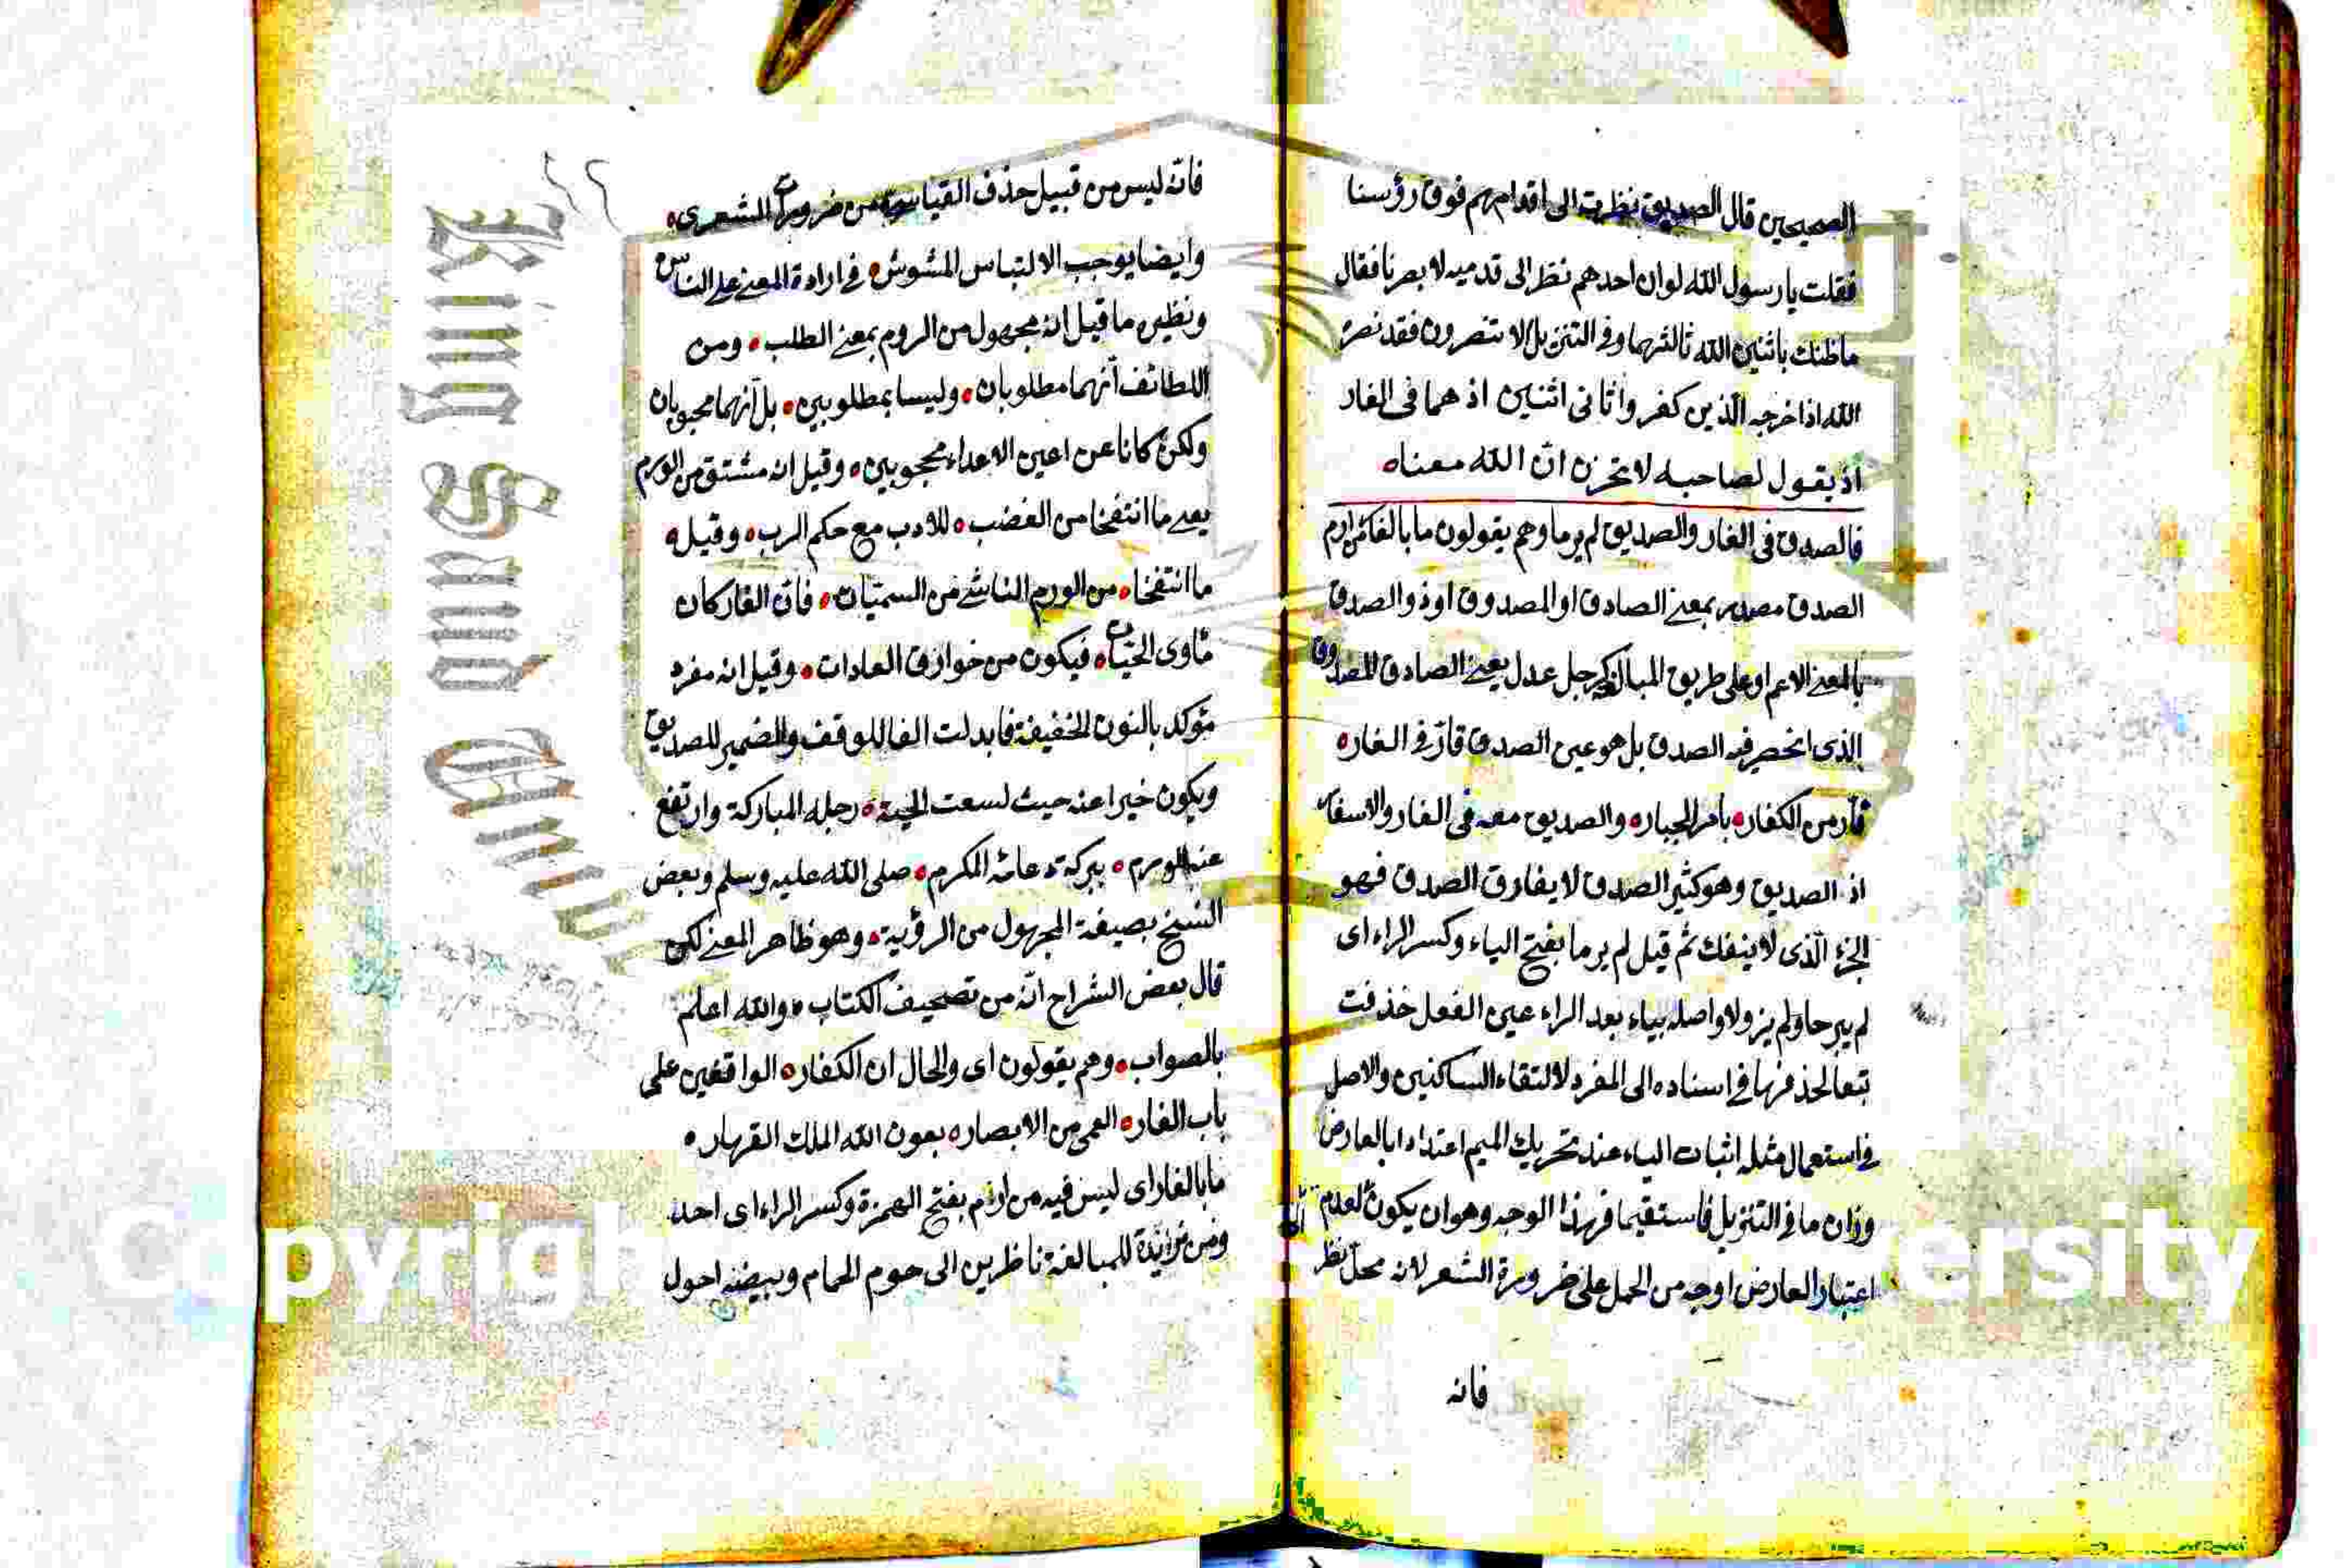 الصحيحين قال الصديق نظرت الى اقدامهم فوق رؤسنا
فقلت يا رسول الله لو ان احدهم نظر الى قدميه لابصرنا فقال
ما ظنك باثنين الله ثالثهما وفي التنزيل الا تنصرون فقد نصره
الله اذ اخرجه الذين كفروا ثاني اثنين اذ هما في الغار
اذ يقول لصاحبه لا تحزن ان الله معنا
فالصدق في الغار والصديق لم يرما وهم يقولون ما بالغار من ارم
الصدق مصدر بمعنى الصادق او المصدوق او ذو الصدق
بالمعنى الاعم او على طريق المبالغة كرجل عدل يعني الصادق المصدوق
الذي انحصر فيه الصدق بل هو عين الصدق قار في الغار
فار من الكفار بامر الجبار والصديق معه في الغار والاسفار
اذ الصديق وهو كثير الصدق لا يفارق الصدق فهو
الجزء الذي لا ينفك ثم قيل لم يرما بفتح الياء وكسر الراء اي
لم يبرحا ولم يزولا واصله بياء بعد الراء عين الفعل حذفت
تبعا لحذفها في اسناده الى المفرد لالتقاء الساكنين والاصل
في استعمال مثله اثبات الياء عند تحريك الميم اعتدادا بالعارض
وزان ما في التنزيل فاستقيما فهذا الوجه وهو ان يكون لعدم
اعتبار العارض اوجه من الحمل على ضرورة الشعر لانه محل نظر
فانه
فانه ليس من قبيل حذف القياس من ضرورات الشعري
وايضا يوجب الالتباس المشوش في ارادة المعنى على الناس
ونظير ما قيل انه مجهول من الروم بمعنى الطلب ومن
اللطائف انهما مطلوبان وليسا بمطلوبين بل انهما محبوبان
ولكن كانا عن اعين الاعداء محجوبين وقيل انه مشتق من الورم
يعني ما انتفخا من الغضب للادب مع حكم الرب وقيل
ما انتفخا من الورم الناشئ من السميات فان الغار كان
مأوى الحيات فيكون من خوارق العادات وقيل انه مفرد
مؤكد بالنون الخفيفة فابدلت الفا للوقف والضمير للصديق
ويكون خبرا عنه حيث لسعت الحية رجله المباركة وارتفع
عنه الورم ببركة دعائه المكرم صلى الله عليه وسلم وبعض
النسخ بصيغة المجهول من الرؤية وهو ظاهر المعنى لكن
قال بعض الشراح انه من تصحيف الكتاب والله اعلم
بالصواب وهم يقولون اي والحال ان الكفار الواقفين على
باب الغار العمي من الابصار بعون الله الملك القهار
ما بالغار اي ليس فيه من ارم بفتح الهمزة وكسر الراء اي احد
ومن مزائدة للمبالغة ناظرين الى حوم الحمام وبيضه احول
King Saud
Copyrigh
ersity